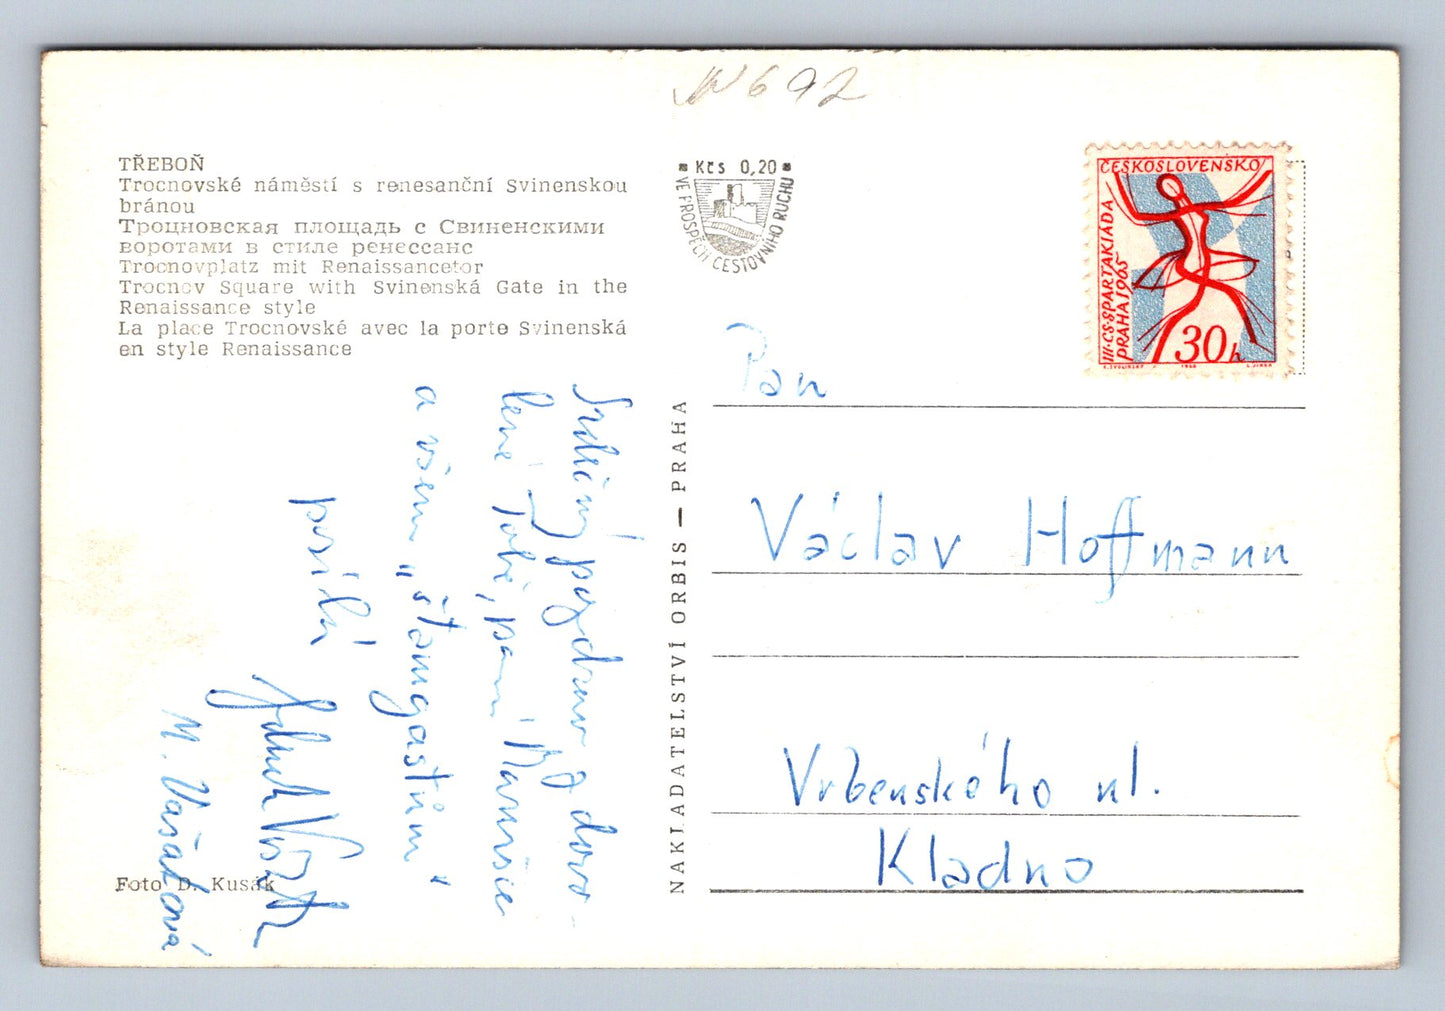 TŘEBOŇ
Trocnovské náměstí s renesanční Svinenskou
bránou
Троцновская площадь с Свиненскими
воротами в стиле ренессанс
Trocnovplatz mit Renaissancetor
Trocnov Square with Svinenská Gate in the
Renaissance style
La place Trocnovské avec la porte Svinenská
en style Renaissance
Srdečný pozdrav z dovo-
lené Tobě, paní Marušce
a všem „štamgastům"
posílá
M. Vašatová
Foto D. Kusák
NAKLADATELSTVÍ ORBIS — PRAHA
692
Kčs 0,20
VE PROSPĚCH CESTOVNÍHO RUCHU
ČESKOSLOVENSKO
III·CS·SPARTAKIÁDA
PRAHA 1965
30h
Pan
Václav Hoffmann
Vrbenského ul.
Kladno